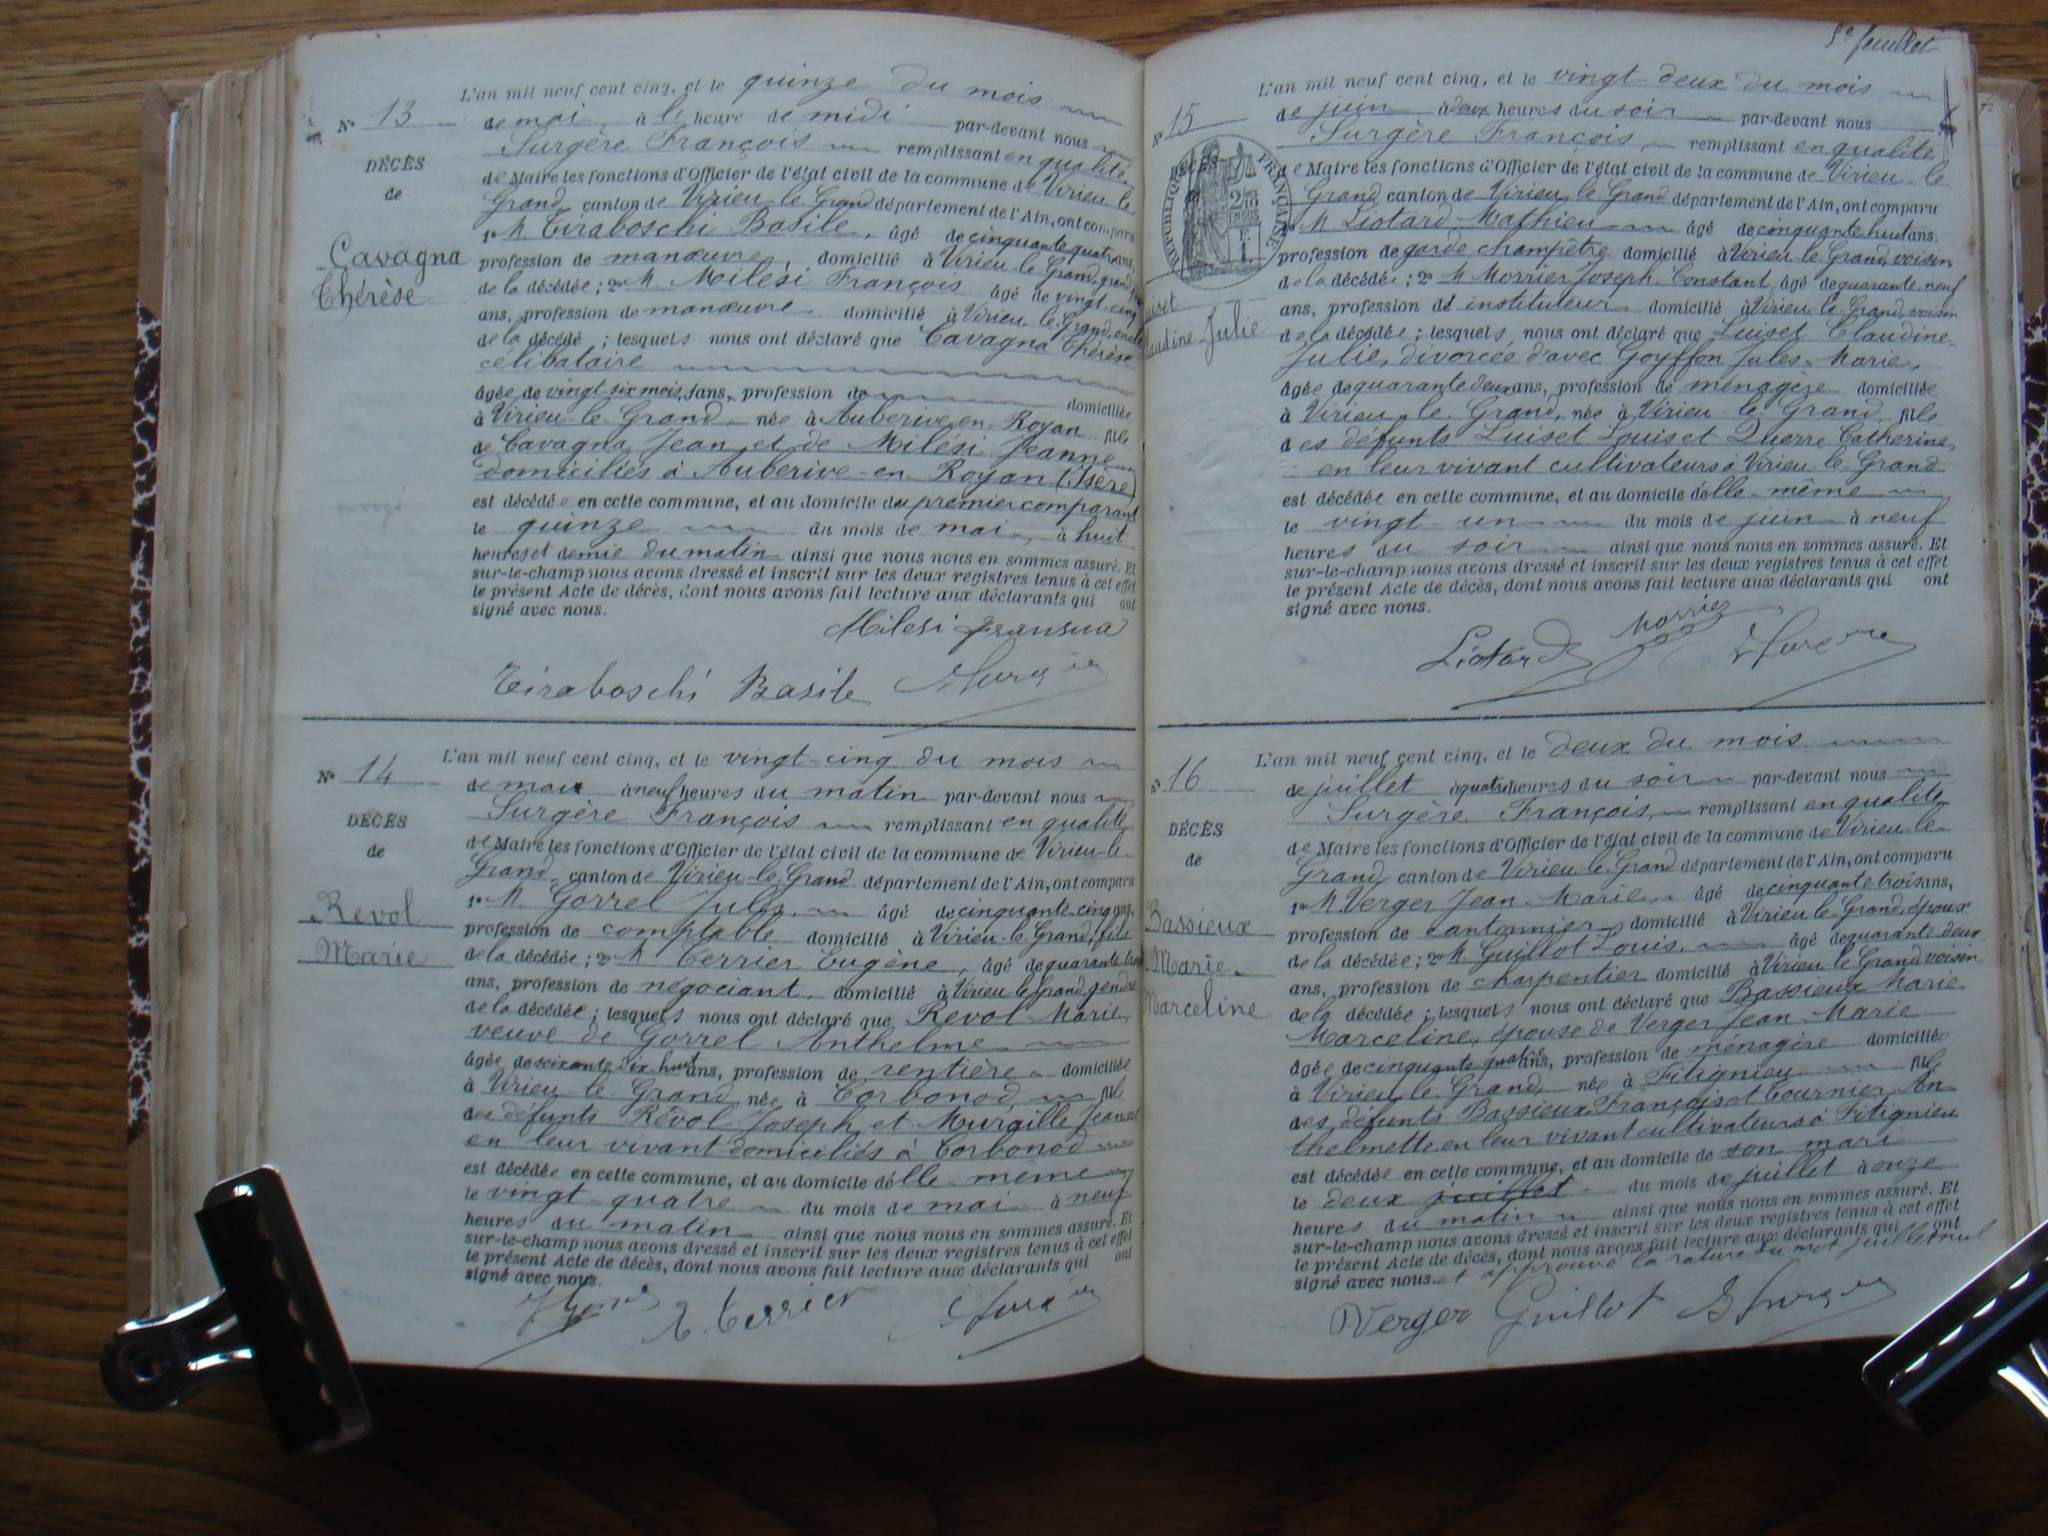 L'an mil neuf cent cinq, et le quinze du mois
No 13
de mai, à l' heure de midi par-devant nous
Surgère François remplissant en qualité
DÉCÈS
de Maire les fonctions d'Officier de l'état civil de la commune de Virieu le
de
Grand, canton de Virieu-le-Grand département de l'Ain, ont comparu
1o M. Tiraboschi Basile, âgé de cinquante quatre ans
Cavagna
profession de manœuvre, domicilié à Virieu-le-Grand, grand
Thérèse
de la décédée; 2o M. Milesi François âgé de vingt cinq
ans, profession de manœuvre domicilié à Virieu-le-Grand, oncle
de la décédé ; lesquels nous ont déclaré que Cavagna Thérèse
célibataire
âgée de vingt six mois, ans, profession de domiciliée
à Virieu-le-Grand, née à Auberive en Royan fille
de Cavagna Jean et de Milési Jeanne
domiciliés à Auberive-en-Royan (Isère)
est décédée en cette commune, et au domicile du premier comparant
le quinze du mois de mai, à huit
heures et demie du matin ainsi que nous nous en sommes assuré. Et
sur-le-champ nous avons dressé et inscrit sur les deux registres tenus à cet effet
le présent Acte de décès, dont nous avons fait lecture aux déclarants qui ont
signé avec nous.
Milesi Fransua
Tiraboschi Basile Surgère
L'an mil neuf cent cinq, et le vingt-cinq du mois
No 14
de mai à neuf heures du matin par-devant nous
Surgère François remplissant en qualité
DÉCÈS
de Maire les fonctions d'Officier de l'état civil de la commune de Virieu-le-
de
Grand, canton de Virieu-le-Grand département de l'Ain, ont comparu
1o M. Gorrel Jules, âgé de cinquante-cinq ans,
Revol
profession de comptable domicilié à Virieu-le-Grand, fils
Marie
de la décédée; 2o M Terrier Eugène, âgé de quarante trois
ans, profession de négociant, domicilié à Virieu le Grand, gendre
de la décédée; lesquels nous ont déclaré que Revol Marie,
veuve de Gorrel Anthelme
âgée de soixante dix huit ans, profession de rentière domiciliée
à Virieu-le-Grand, née à Corbonod, fille
des défunts Revol Joseph et Muraille Jeanne
en leur vivant domiciliés à Corbonod
est décédée en cette commune, et au domicile d'elle-même
le vingt-quatre du mois de mai à neuf
heures du matin ainsi que nous nous en sommes assuré. Et
sur-le-champ nous avons dressé et inscrit sur les deux registres tenus à cet effet
le présent Acte de décès, dont nous avons fait lecture aux déclarants qui ont
signé avec nous.
E. Terrier Surgère
5e feuillet
L'an mil neuf cent cinq, et le vingt-deux du mois
No 15
de juin à deux heures du soir par-devant nous
Surgère François, remplissant en qualité
DÉCÈS
RÉPUBLIQUE FRANÇAISE
2/10 EN SUS
de Maire les fonctions d'Officier de l'état civil de la commune de Virieu-le
Grand, canton de Virieu-le-Grand département de l'Ain, ont comparu
M Liotard Mathieu âgé de cinquante huit ans.
profession de garde champêtre domicilié à Virieu-le-Grand, voisin
de la décédée; 2o M Morrier Joseph Constant âgé de quarante neuf
ans, profession de instituteur domicilié à Virieu-le-Grand, voisin
uiset
audine-Julie
de la décédée; lesquels nous ont déclaré que Luiset Claudine
Julie, divorcée d'avec Goyffon Jules-Marie,
âgée de quarante deux ans, profession de ménagère domiciliée
à Virieu-le-Grand, née à Virieu-le-Grand, fille
des défunts Luiset Louis et Querre Catherine,
en leur vivant cultivateurs à Virieu-le-Grand
est décédée en cette commune, et au domicile d'elle-même
le vingt-un du mois de juin à neuf
heures du soir ainsi que nous nous en sommes assuré. Et
sur-le-champ nous avons dressé et inscrit sur les deux registres tenus à cet effet
le présent Acte de décès, dont nous avons fait lecture aux déclarants qui ont
signé avec nous.
Morrier
Liotard Surgère
L'an mil neuf cent cinq, et le deux du mois
No 16
de juillet à quatre heures du soir par-devant nous
Surgère François, remplissant en qualité
DÉCÈS
de Maire les fonctions d'Officier de l'état civil de la commune de Virieu-le-
de
Grand, canton de Virieu-le-Grand département de l'Ain, ont comparu
1o M. Verger Jean-Marie âgé de cinquante trois ans,
Bassieux
profession de cantonnier domicilié à Virieu-le-Grand, époux
Marie-
de la décédée; 2o M Guillot Louis, âgé de quarante deux
ans, profession de charpentier domicilié à Virieu-le-Grand voisin
Marceline
de la décédée; lesquels nous ont déclaré que Bassieux Marie
Marceline, épouse de Verger Jean-Marie
âgée de cinquante quatre ans, profession de ménagère domiciliée
à Virieu-le-Grand, née à Fitignieu fille
des défunts Bassieux François et Tournier An-
thelmette en leur vivant cultivateurs à Fitignieu
est décédée en cette commune, et au domicile de son mari
le deux juillet du mois de juillet à onze
heures du matin ainsi que nous nous en sommes assuré. Et
sur-le-champ nous avons dressé et inscrit sur les deux registres tenus à cet effet
le présent Acte de décès, dont nous avons fait lecture aux déclarants qui ont
signé avec nous. et approuvé la rature du mot juillet nul
Verger Guillot Surgère